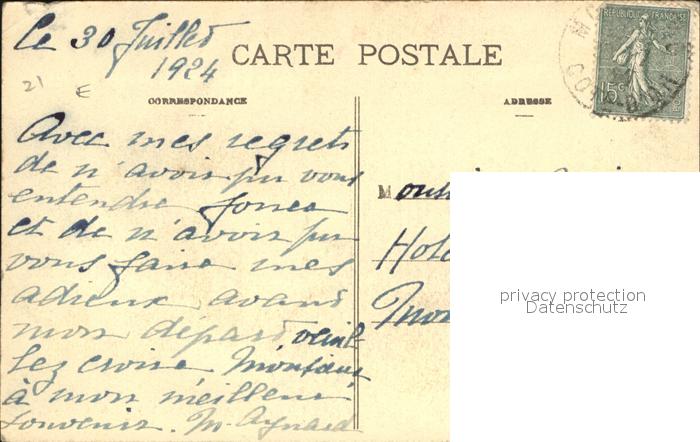 Le 30 Juillet
1924
CARTE POSTALE
REPUBLIQUE FRANÇAISE
15c
21
E
CORRESPONDANCE
ADRESSE
Avec mes regrets
de n'avoir pu vous
entendre jouer
et de n'avoir pu
vous faire mes
adieux avant
mon départ veuil-
lez croire Monsieur
à mon meilleur
souvenir. M. Aynard
Hot
privacy protection
Datenschutz